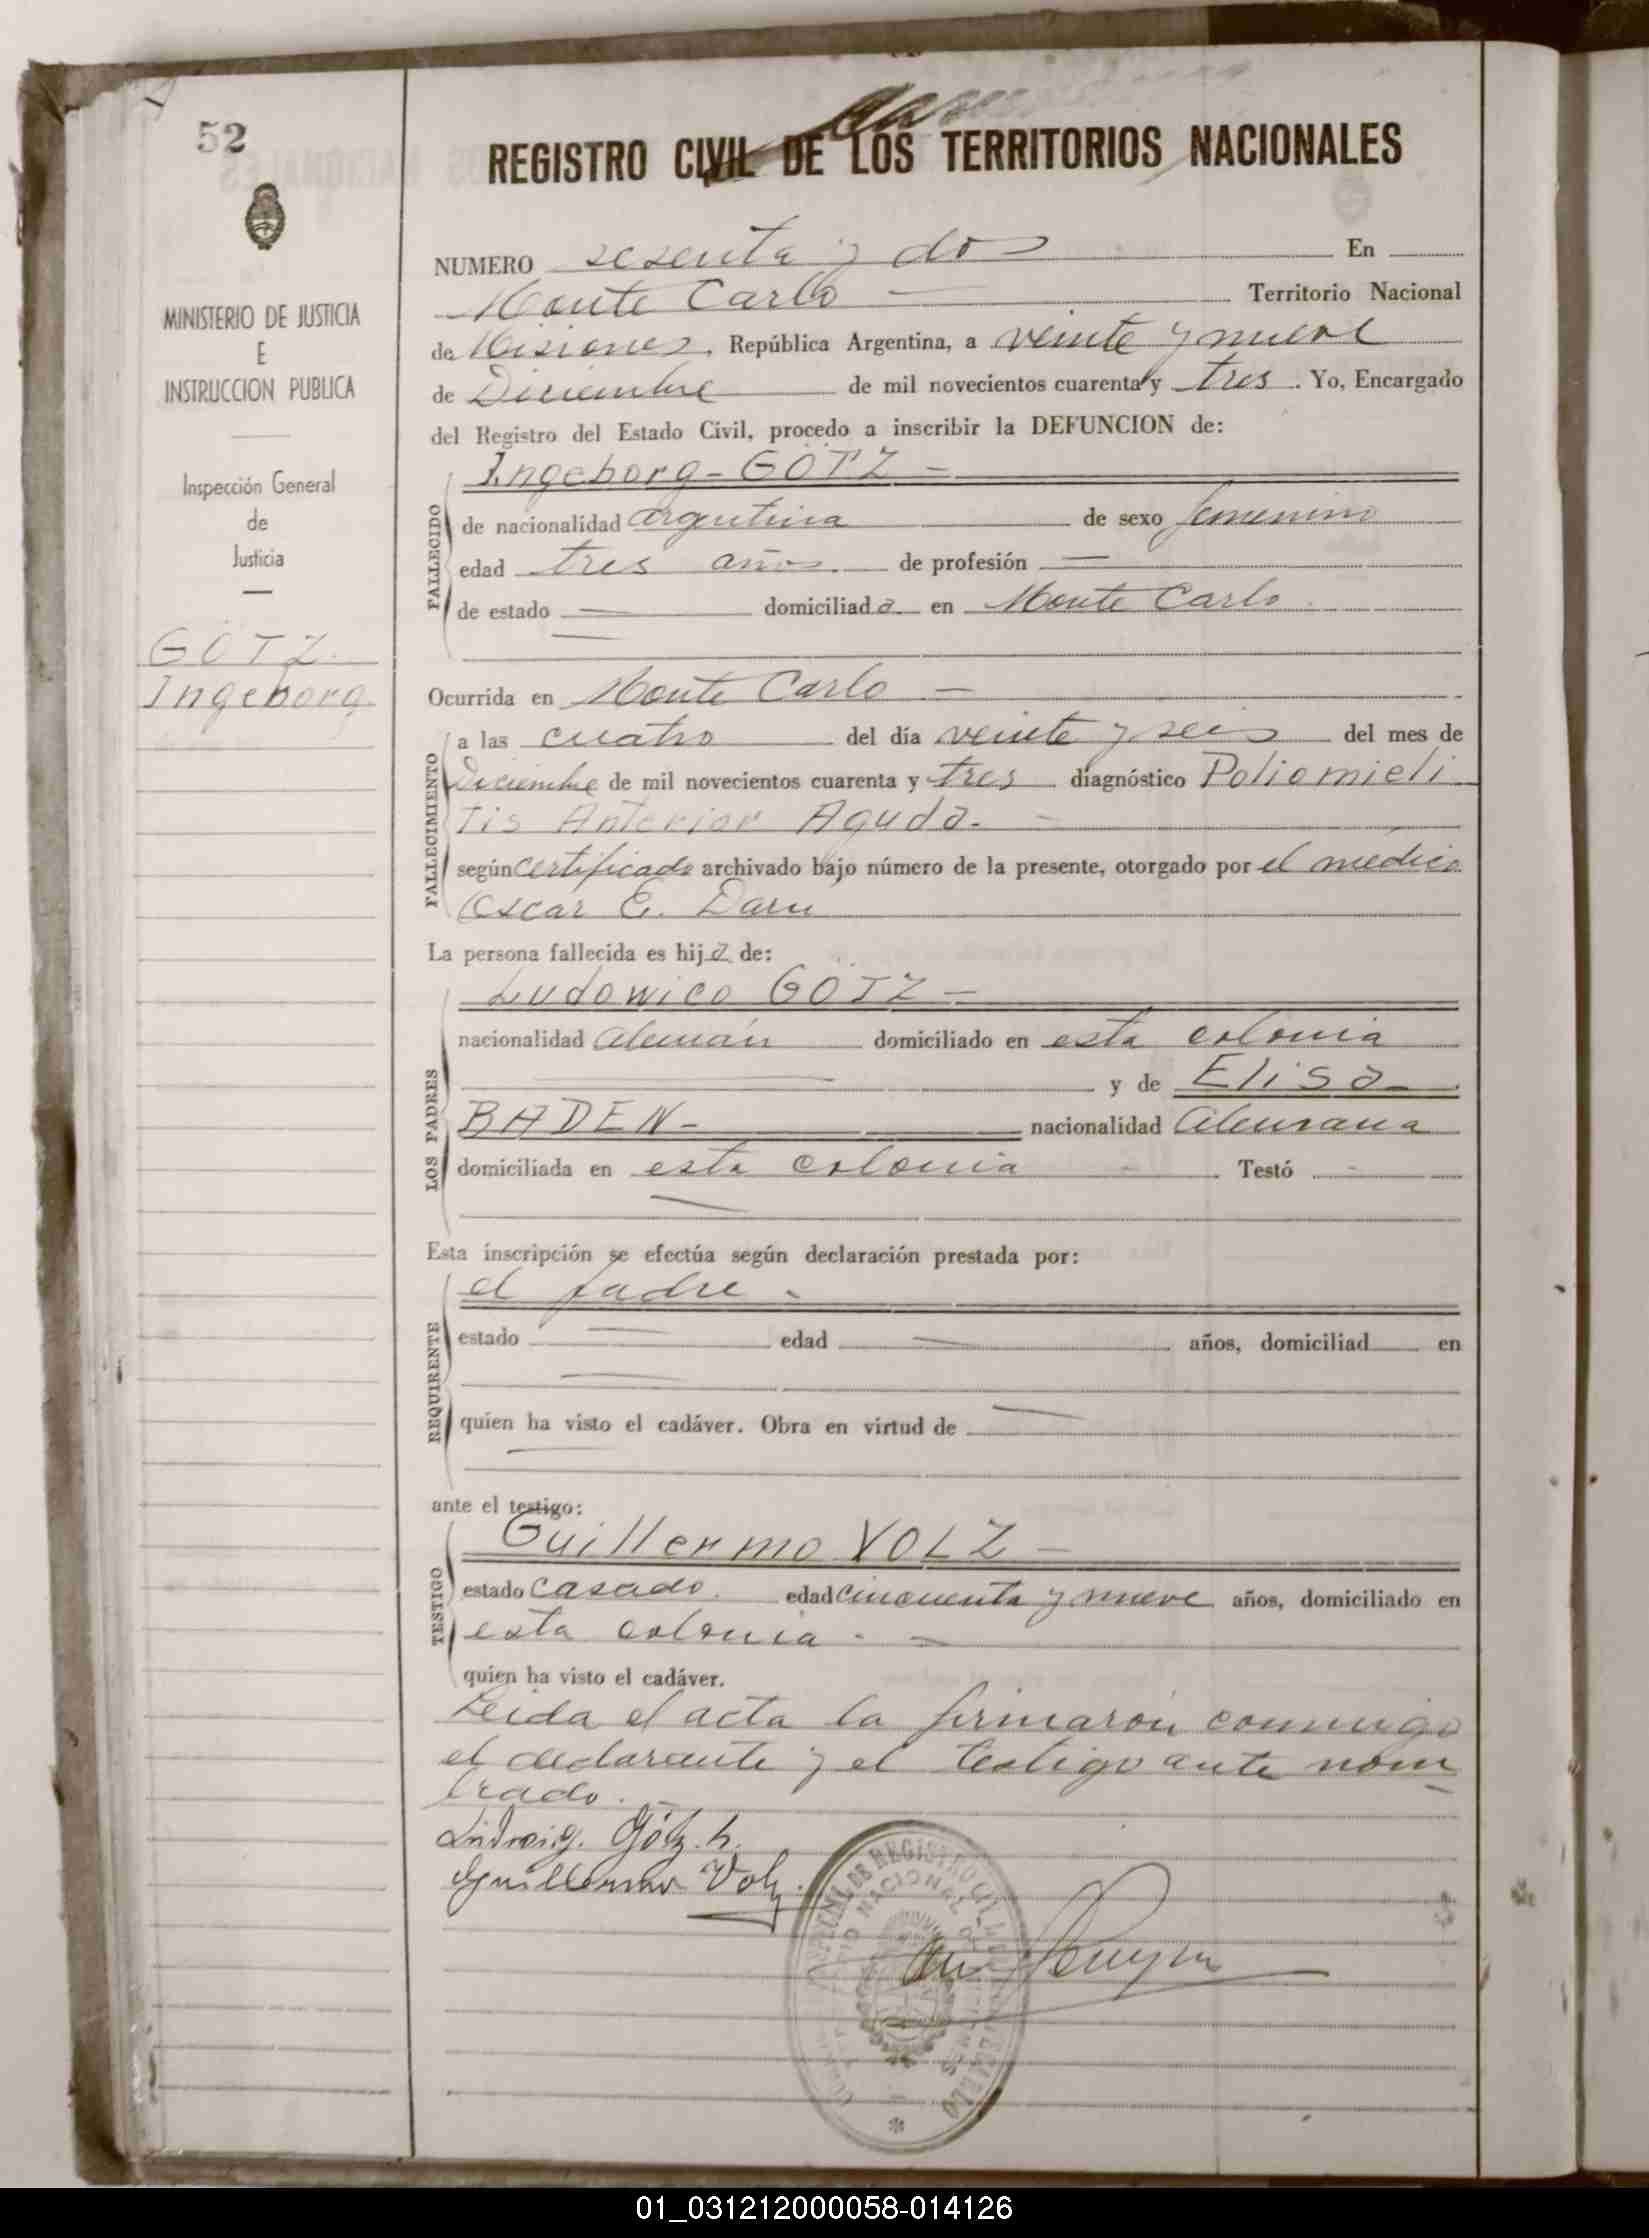 52
REGISTRO CIVIL DE LOS TERRITORIOS NACIONALES
MINISTERIO DE JUSTICIA
E
INSTRUCCION PUBLICA
Inspección General
de
Justicia
GÖTZ.
Ingeborg.
NUMERO sesenta y dos En
Monte Carlo Territorio Nacional
de Misiones, República Argentina, a veinte y nueve
de Diciembre de mil novecientos cuarenta y tres. Yo, Encargado
del Registro del Estado Civil, procedo a inscribir la DEFUNCION de:
FALLECIDO
Ingeborg-GÖTZ-
de nacionalidad argentina de sexo femenino
edad tres años. de profesión —
de estado — domiciliada en Monte Carlo
Ocurrida en Monte Carlo -
FALLECIMIENTO
a las cuatro del día veinte y seis del mes de
Diciembre de mil novecientos cuarenta y tres diagnóstico Poliomieli
tis Anterior Aguda.-
según certificado archivado bajo número de la presente, otorgado por el médico
Oscar E. Daru
La persona fallecida es hija de:
LOS PADRES
Ludowico GÖTZ-
nacionalidad alemán domiciliado en esta colonia
y de Elisa
BADEN- nacionalidad alemana
domiciliada en esta colonia - Testó -
Esta inscripción se efectúa según declaración prestada por:
REQUIRENTE
el padre.
estado — edad — años, domiciliad en
quien ha visto el cadáver. Obra en virtud de —
ante el testigo:
TESTIGO
Guillermo VOLZ -
estado casado. edad cincuenta y nueve años, domiciliado en
esta colonia. -
quien ha visto el cadáver.
Leida el acta la firmarón conmigo
el declarante y el testigo ante nom
brado.
Ludwig. Götz. h.
Guillermo Volz.
01_031212000058-014126